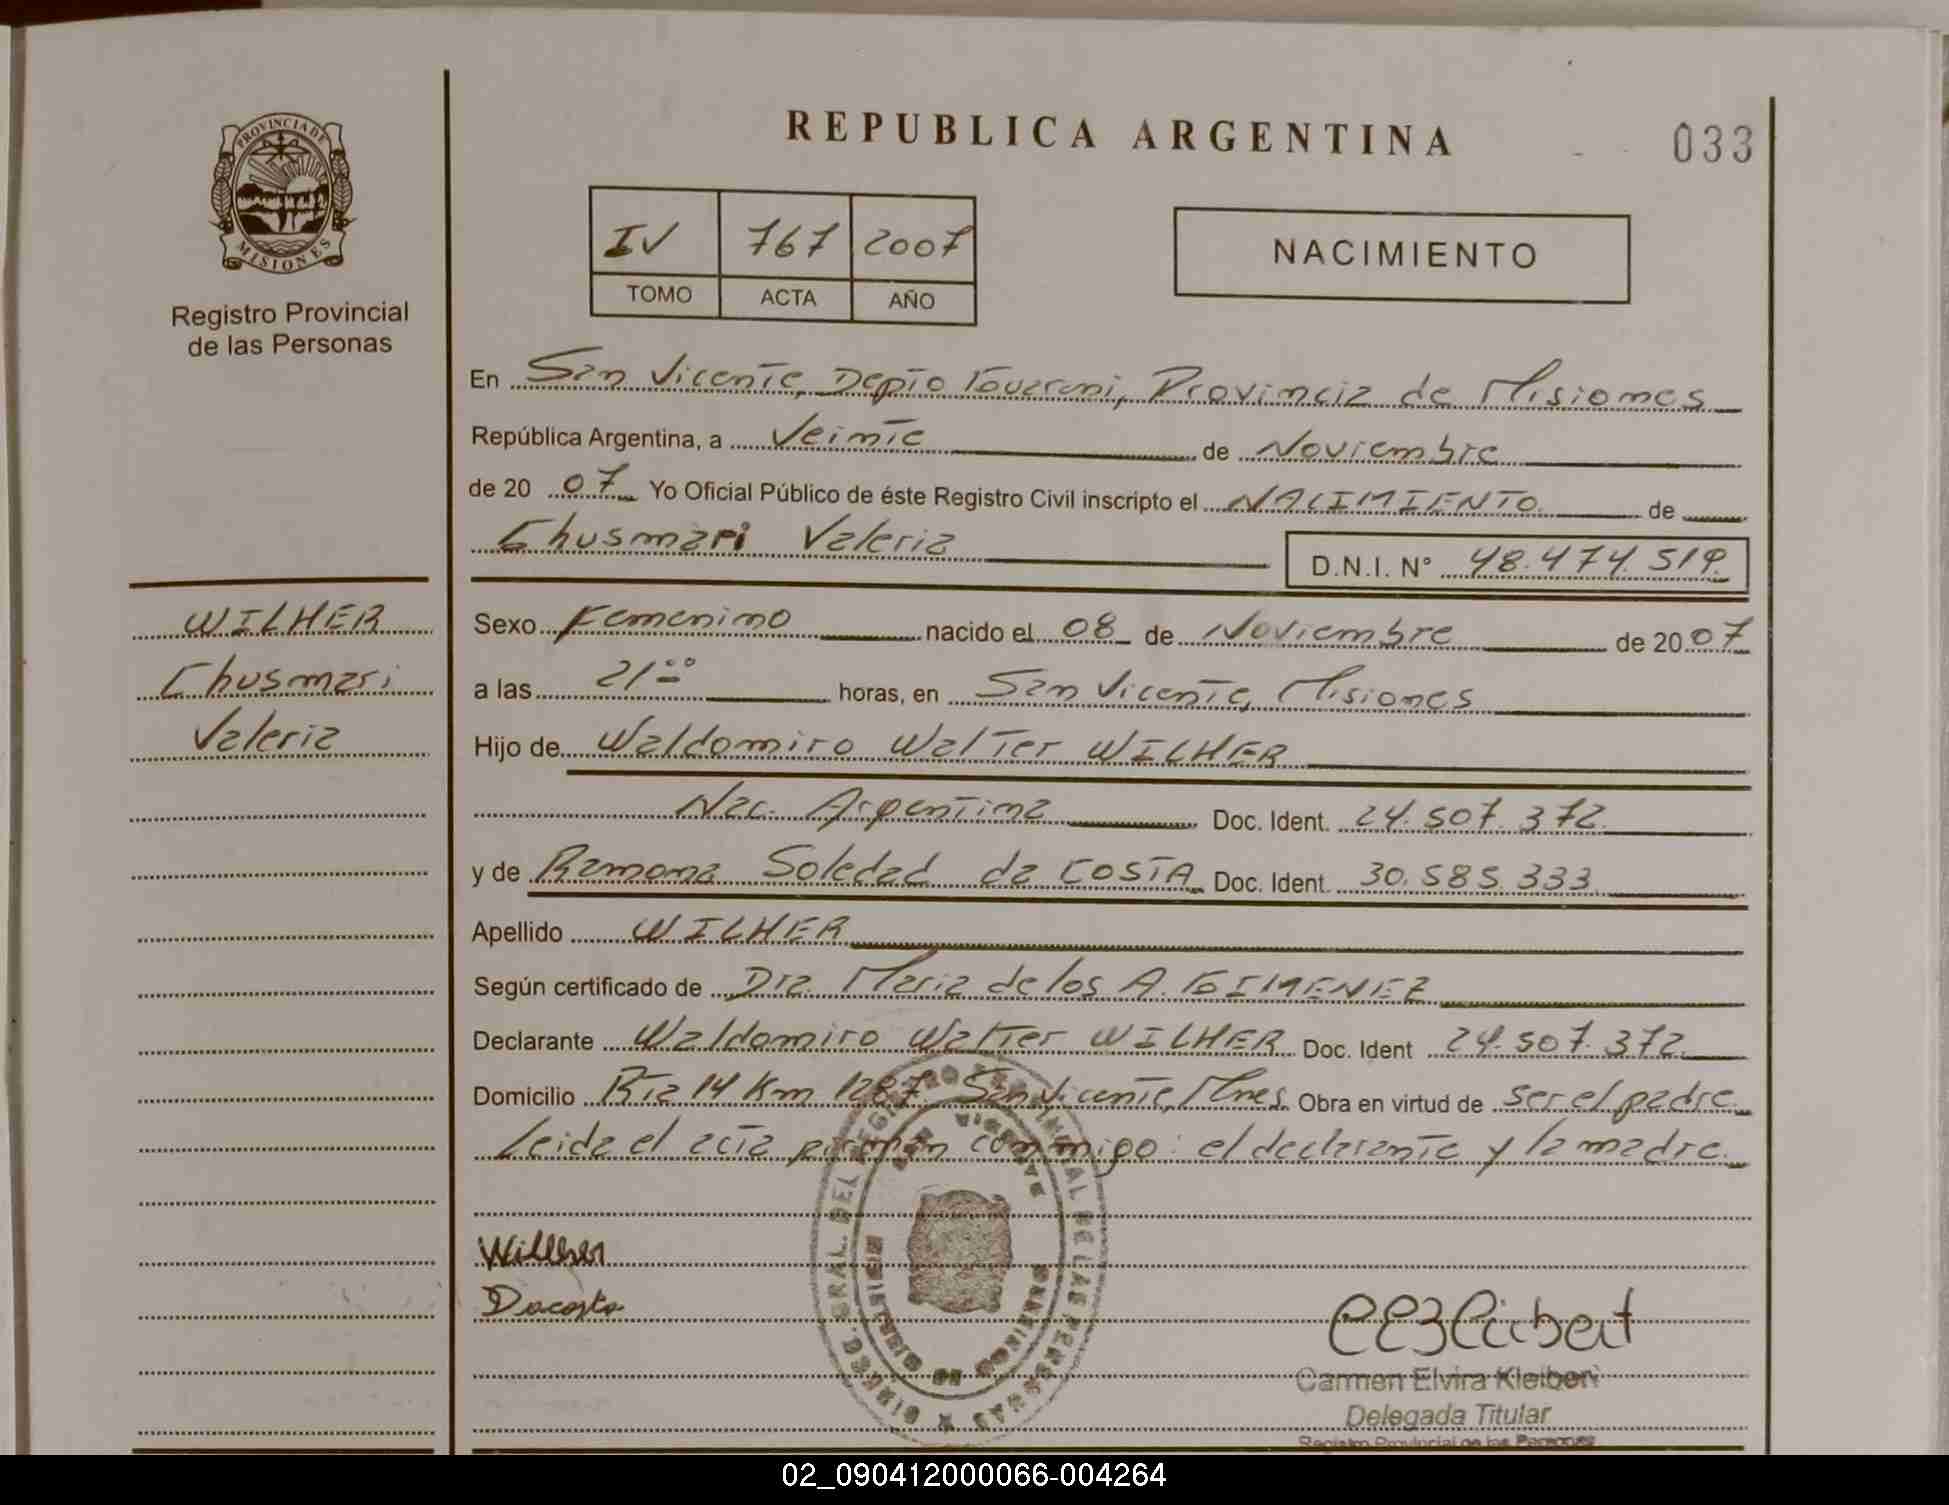 PROVINCIA DE
MISIONES
Registro Provincial
de las Personas
REPUBLICA ARGENTINA
033
IV 767 2007
TOMO ACTA AÑO
NACIMIENTO
En San Vicente, Depto Guarani, Provincia de Misiones
República Argentina, a Veinte de Noviembre
de 20 07 Yo Oficial Público de éste Registro Civil inscripto el NACIMIENTO de
Chusmari Valeria
D.N.I. N° 48.474.519.
WILHER
Chusmari
Valeria
Sexo Femenino nacido el 08 de Noviembre de 2007
a las 21 00 horas, en San Vicente, Misiones
Hijo de Waldomiro Walter WILHER
Nac. Argentina Doc. Ident. 24.507.372.
y de Ramona Soledad da COSTA Doc. Ident. 30.585.333
Apellido WILHER
Según certificado de Dra. Maria de los A. GIMENEZ
Declarante Waldomiro Walter WILHER Doc. Ident 24.507.372
Domicilio Rta 14 Km 1287. San Vicente, Mnes. Obra en virtud de ser el padre
Leida el acta firman conmigo: el declarante y la madre.
Wilher
Dacosta
Carmen Elvira Kleibert
Delegada Titular
Registro Provincial de las Personas
02_090412000066-004264